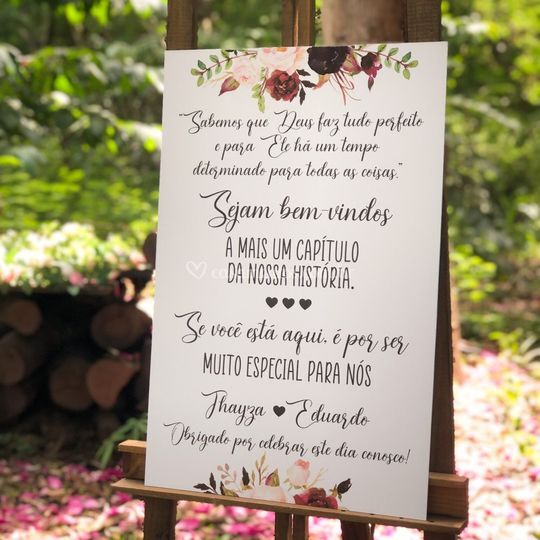 "Sabemos que Deus faz tudo perfeito
e para Ele há um tempo
determinado para todas as coisas."
Sejam bem-vindos
A MAIS UM CAPÍTULO
DA NOSSA HISTÓRIA.
Se você está aqui, é por ser
MUITO ESPECIAL PARA NÓS
Thayza ♥ Eduardo
Obrigado por celebrar este dia conosco!